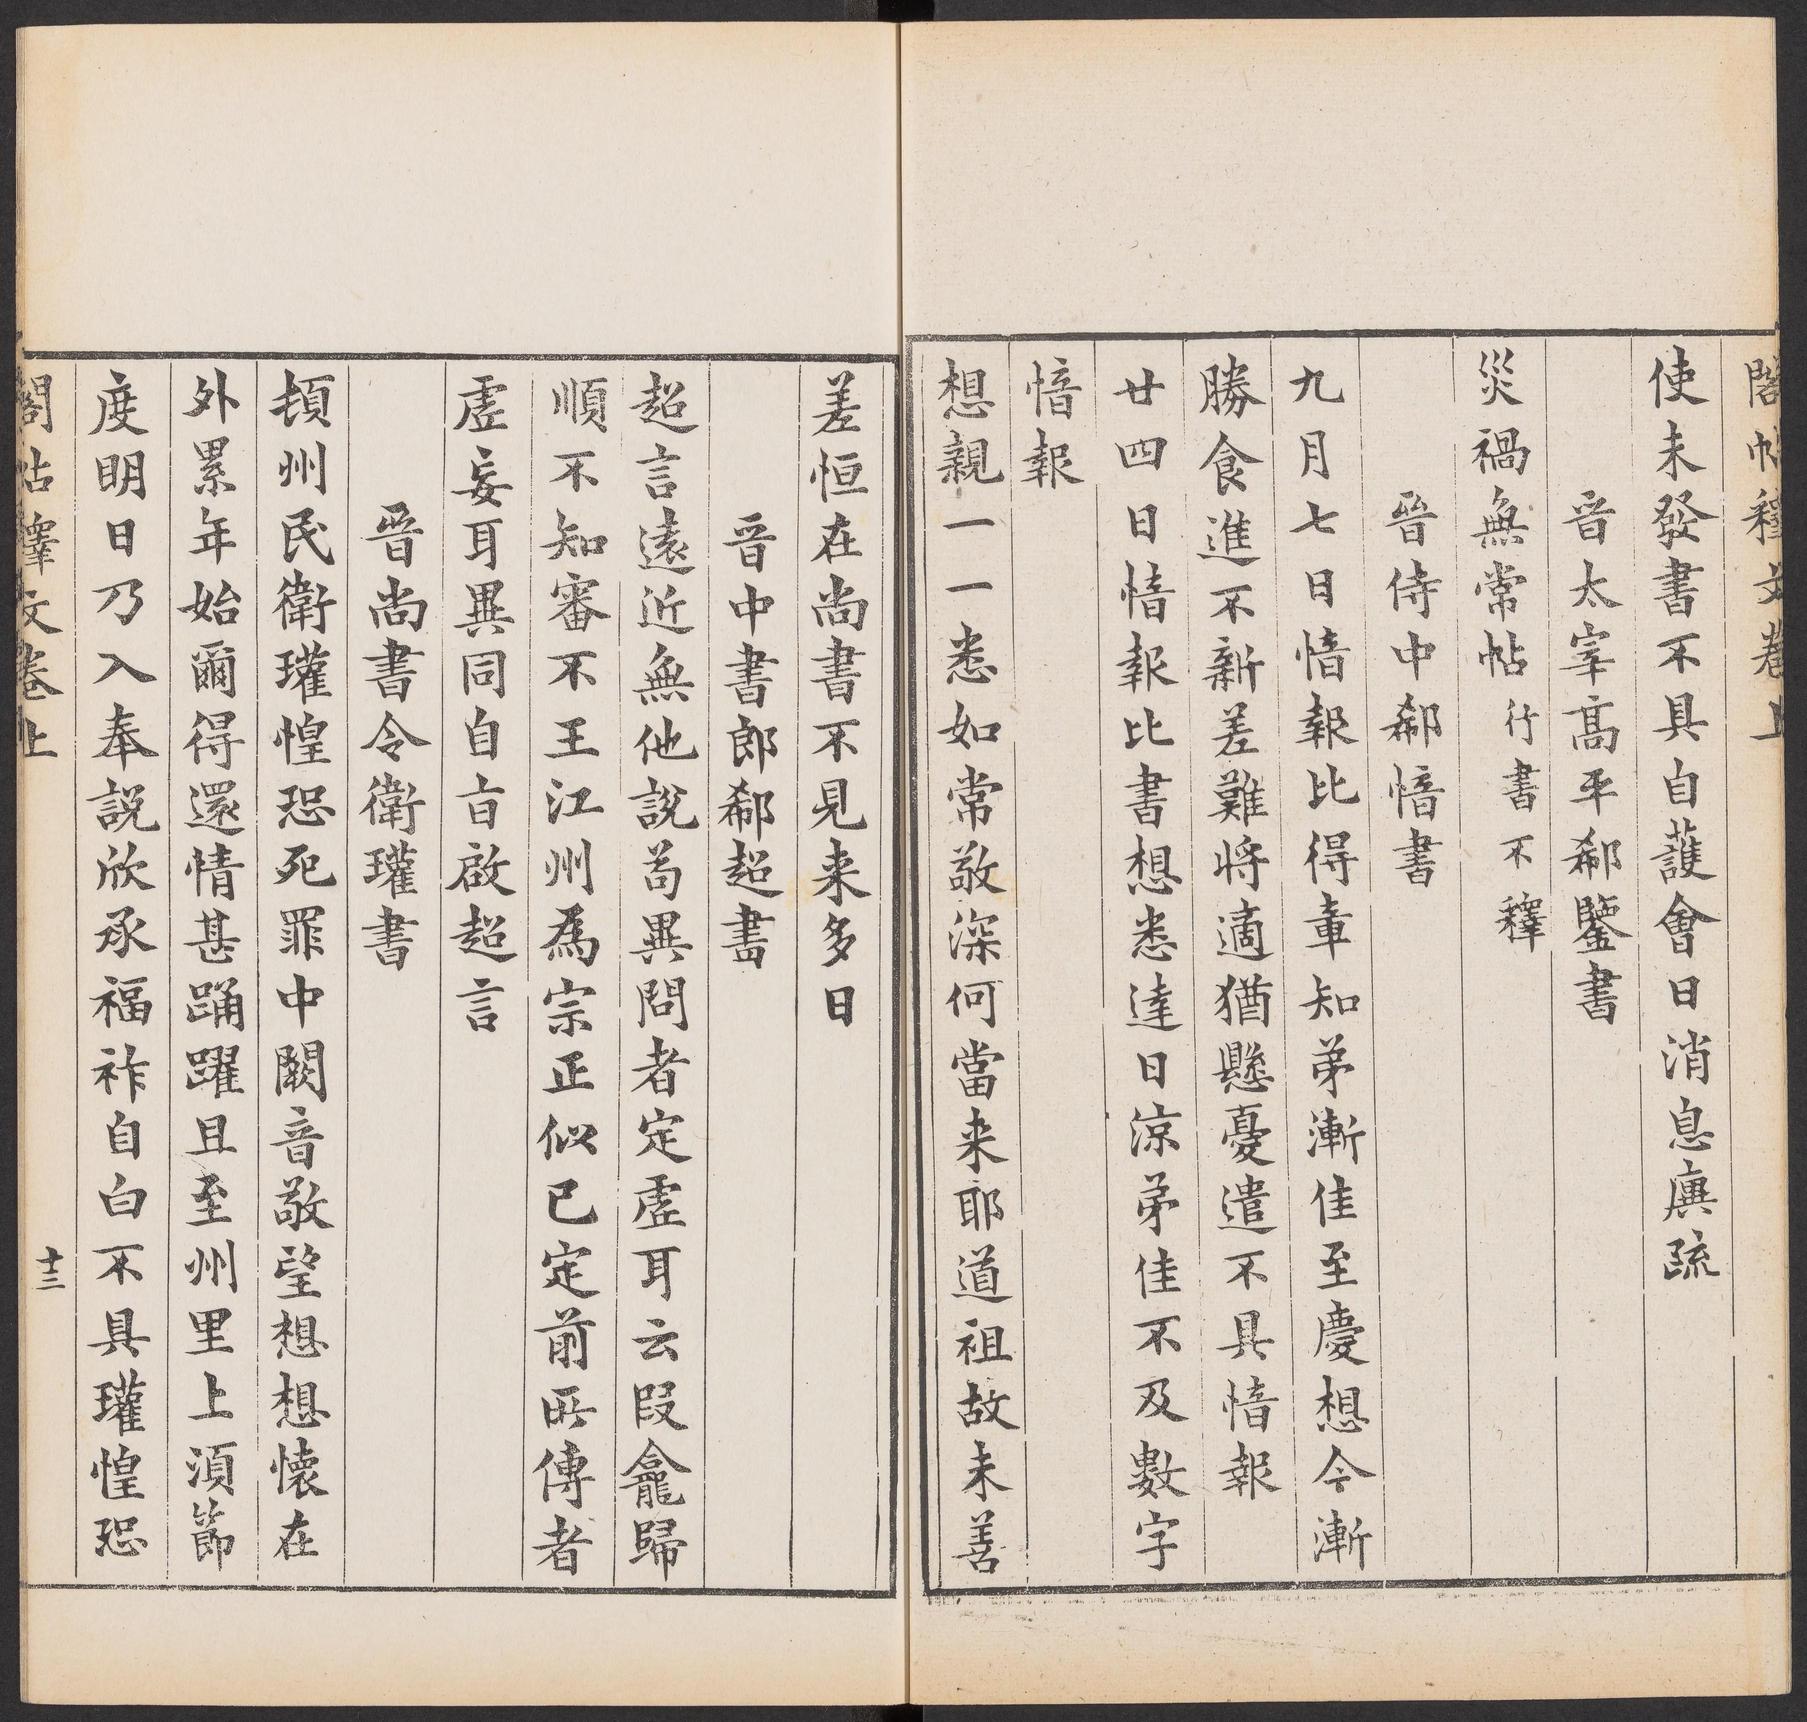 閣帖釋文卷上
使未發書不具自護會日消息廙疏
晉太宰高平郗鑒書
災禍無常帖行書不釋
晉侍中郗愔書
九月七日愔報比得章知弟漸佳至慶想今漸
勝食進不新差難將適猶懸憂遣不具愔報
廿四日愔報比書想悉達日涼弟佳不及數字
愔報
想親一一悉如常敬深何當来耶道祖故未善
差恒在尚書不見来多日
晉中書郎郗超書
超言遠近無他說苟異問者定虛耳云叚龕歸
順不知審不王江州為宗正似已定前所傳者
虛妄耳異同自白啟超言
晉尚書令衛瓘書
頓州民衛瓘惶恐死罪中闕音敬望想想懷在
外累年始爾得還情甚踊躍且至州里上湏節
度明日乃入奉說欣承福祚自白不具瓘惶恐
閣帖釋文卷上
十三